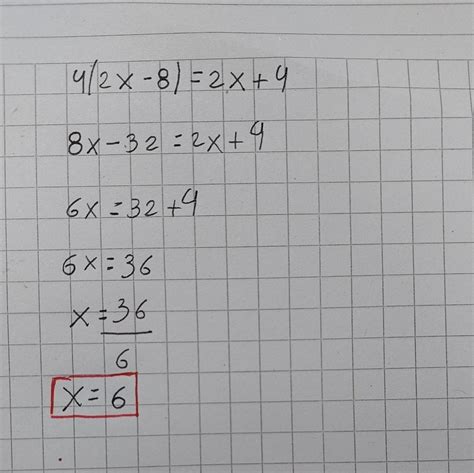 4(2x-8)=2x+4
8x-32=2x+4
6x=32+4
6x=36
x=36
6
x=6